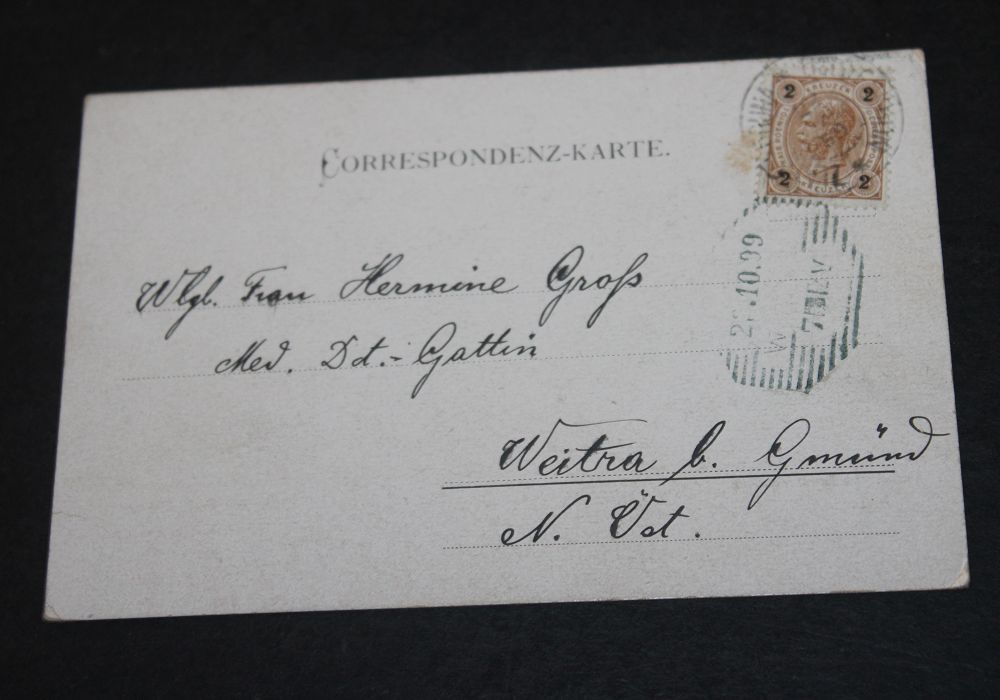 CORRESPONDENZ-KARTE.
2 KREUZER 2
2 KREUZER 2
10.99
7
V
W
Wlgb. Frau Hermine Groſs
Med. Dt.- Gattin
Weitra b. Gmünd
N. Öst.